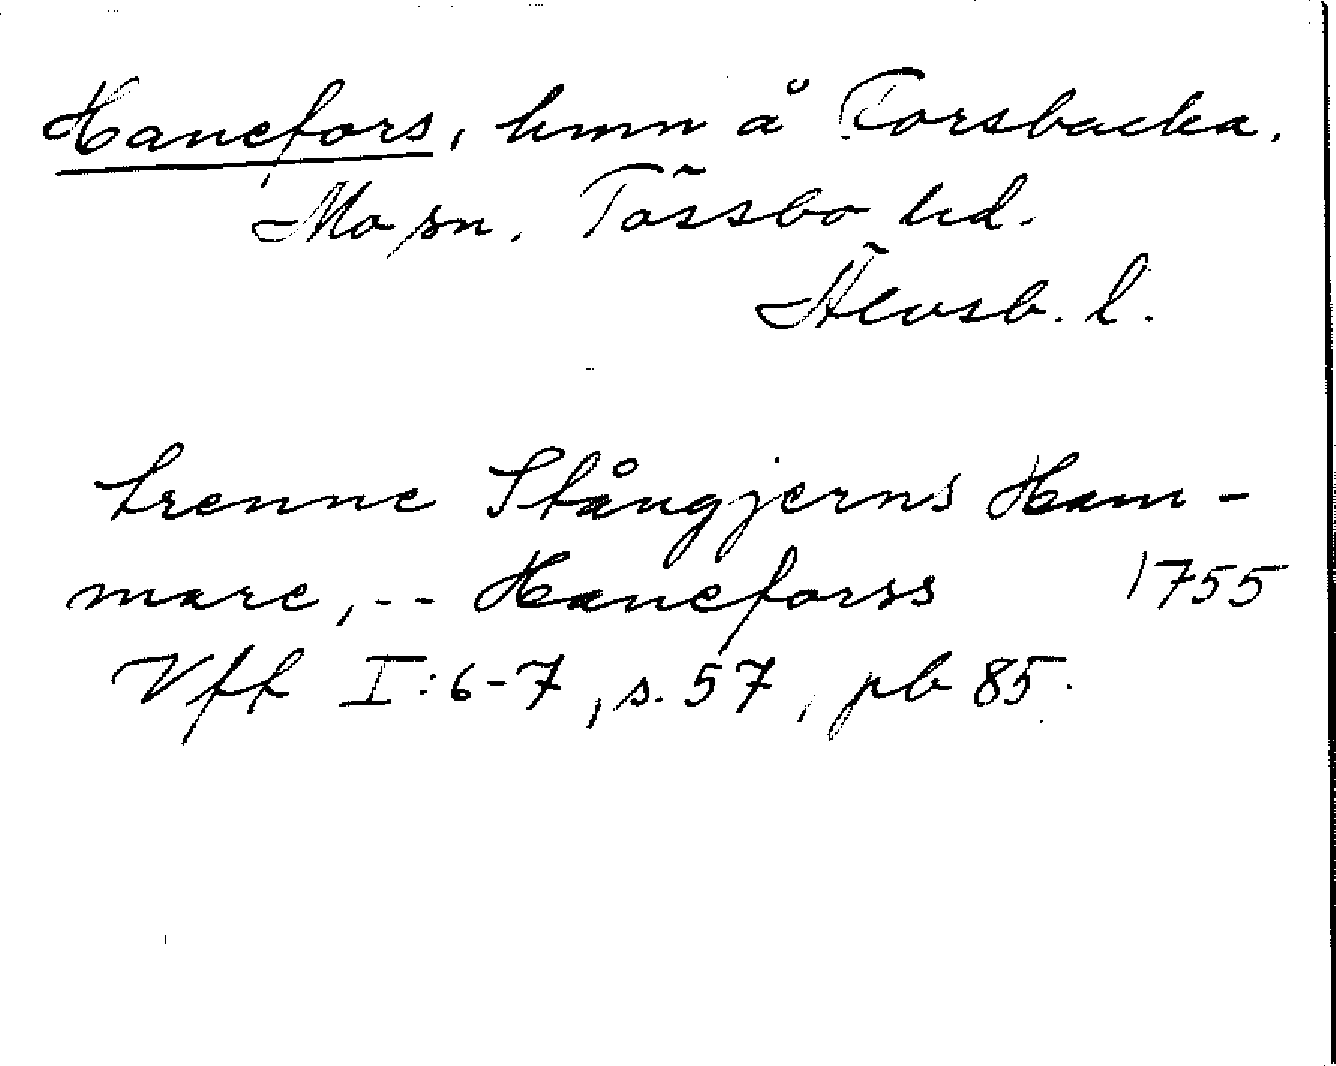 Hanefors, hmn å Forsbacka.
Mo sn. Tössbo hd.
Älvsb. l.
trenne Stångjerns Ham-
mare, -- Haneforss 1755
Vff I:6-7, s. 57, pb 85.